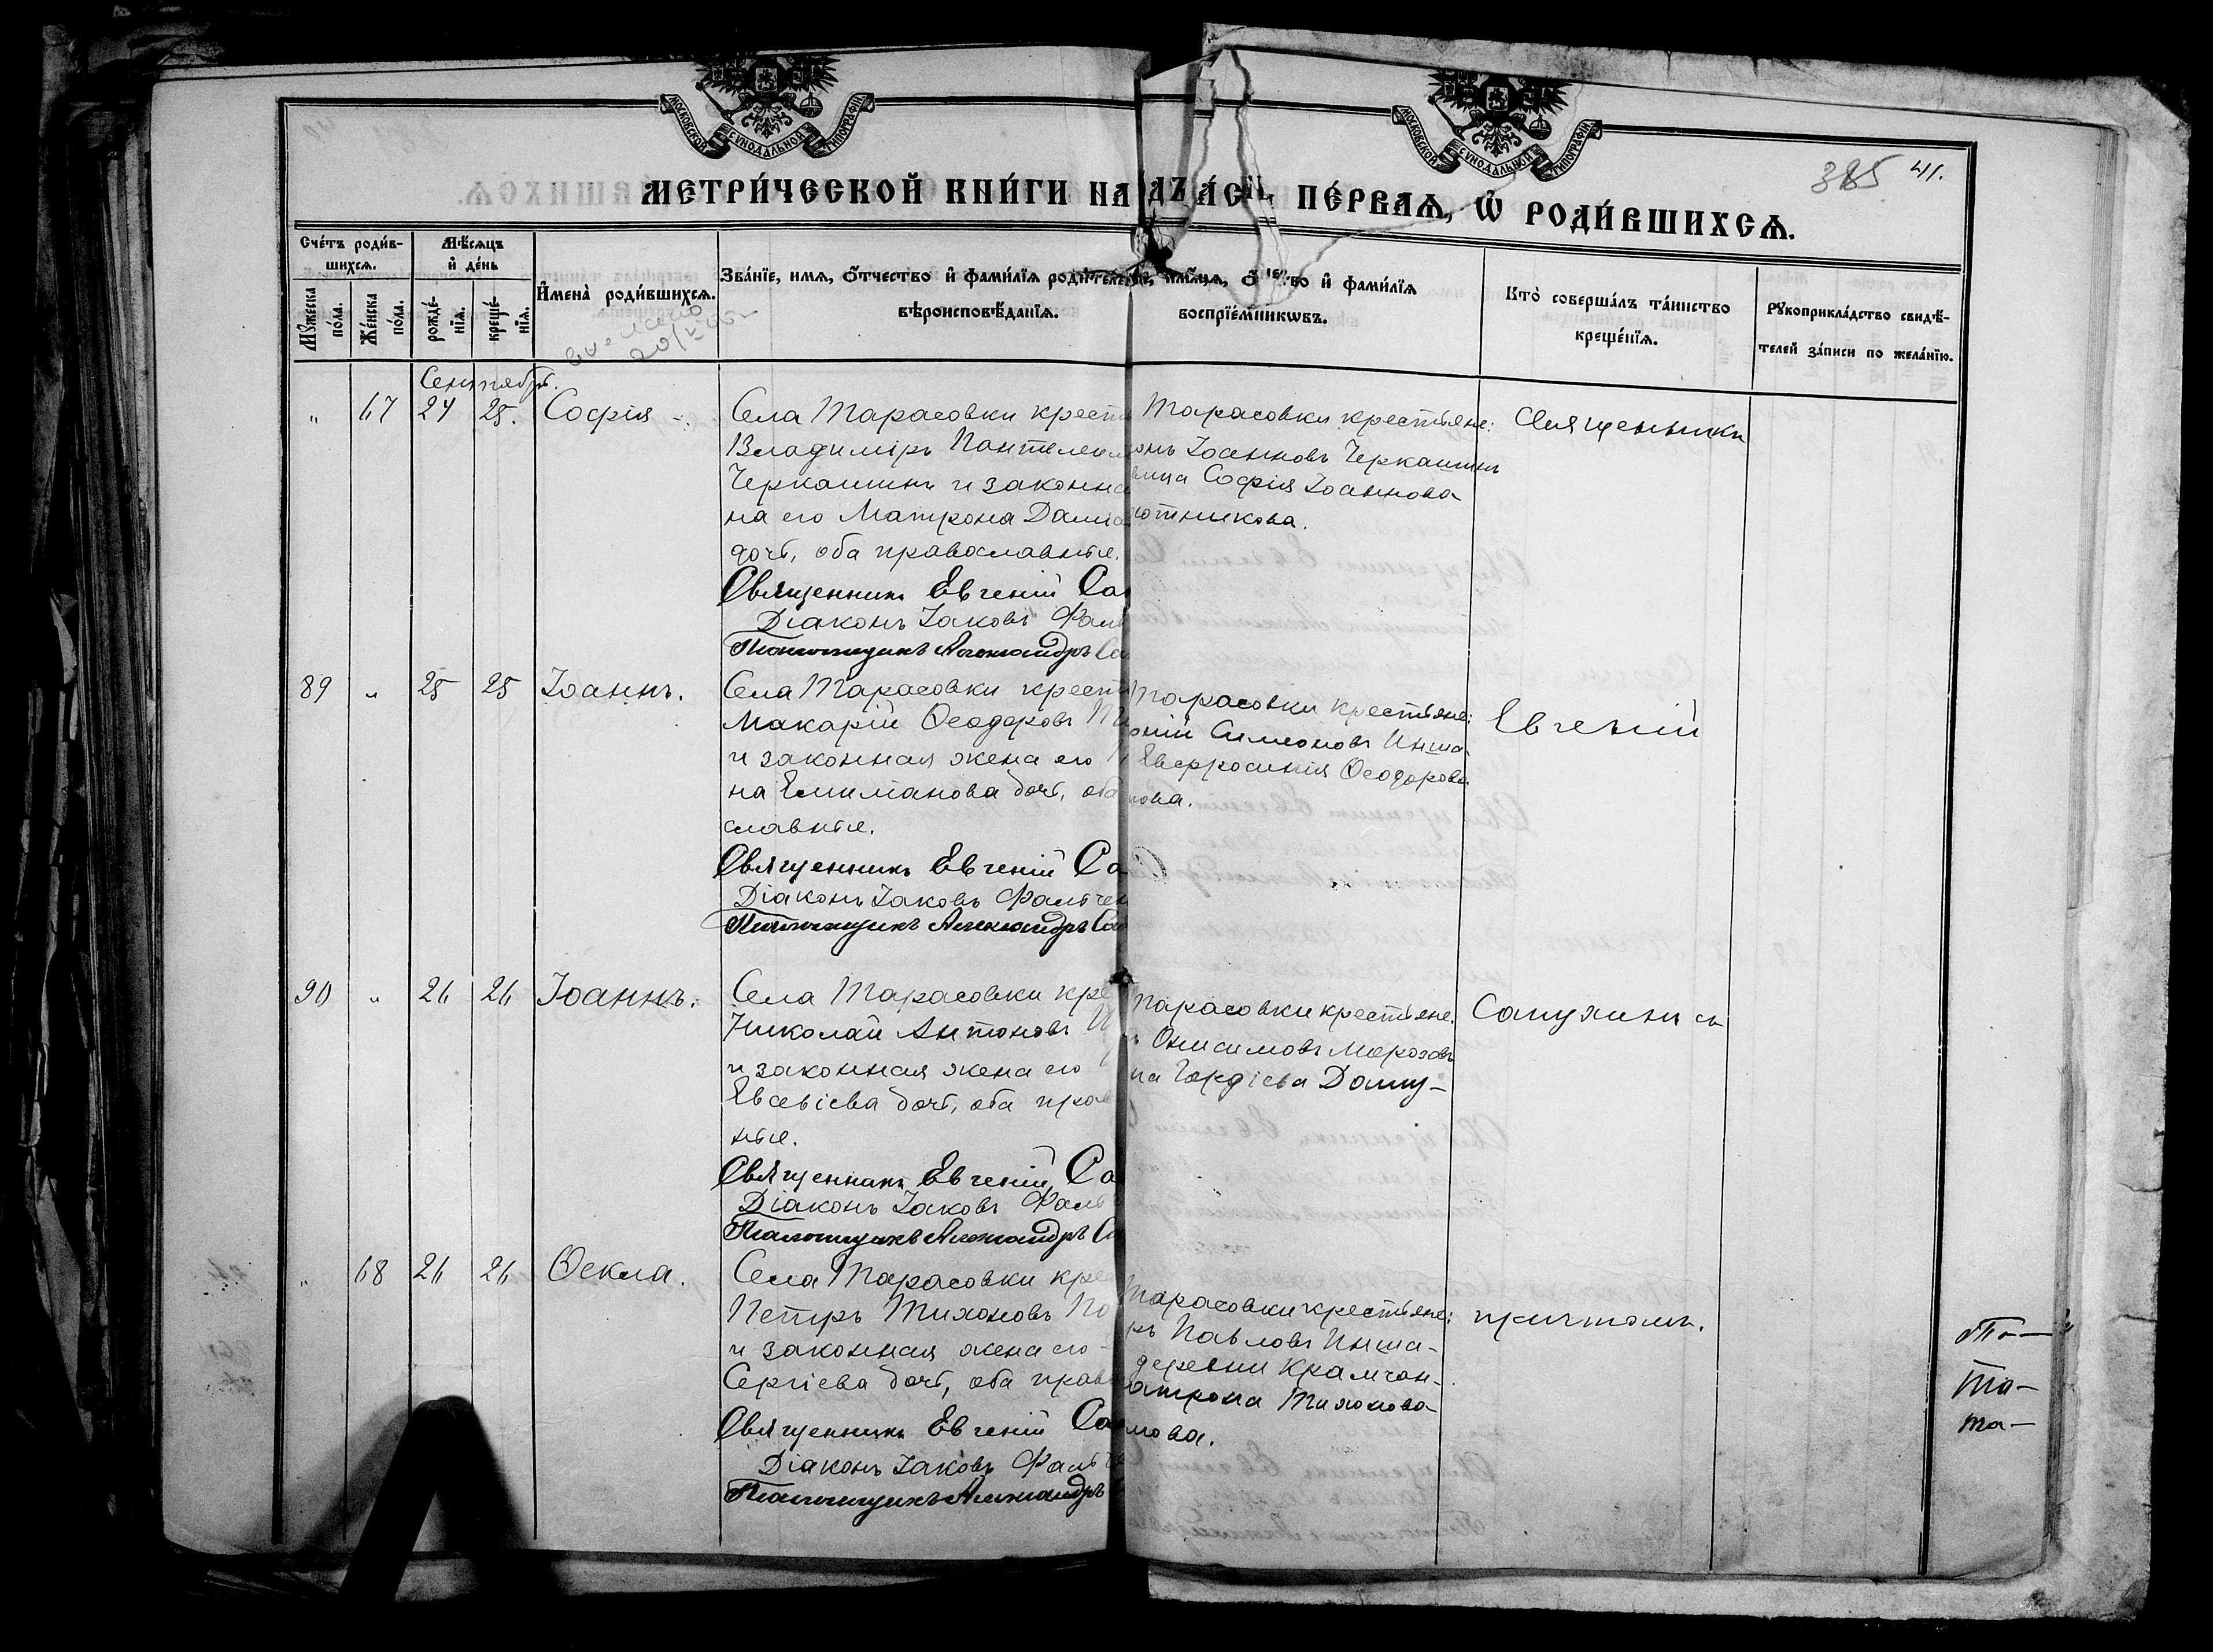 МОСКОВСКОЙ СУНОДАЛЬНОЙ ТИПОГРАФІИ
МОСКОВСКОЙ СУНОДАЛЬНОЙ ТИПОГРАФІИ
385 41.
МЕТРИ́ЧЕСКОЙ КНИ́ГИ НА
ПЕ́РВАѦ, Ѽ РОДИ́ВШИХСѦ.
Сче́тъ роди́в-
шихсѧ.
Мꙋжеска по́ла.
Же́нска по́ла.
Мѣ́сѧцъ
и҆ де́нь
рожде́-
нїѧ.
креще́-
нїѧ.
И҆мена̀ роди́вшихсѧ.
Зва́нїе, имѧ, ѻ҆́тчество и҆ фами́лїѧ
вѣроисповѣ́данїѧ.
и҆ фами́лїѧ
воспрїе́мникѡвъ.
Кто̀ соверша́лъ та́инство
креще́нїѧ.
Рꙋкоприкла́дство свидѣ́-
телей за́писи по жела́нїю.
Сентябрь.
" 67 24 25. Софія
Села Тарасовки крест
Владиміръ Пантелеим
Черкашинъ и законна
на его Матрона Даміа
дочь, оба православные.
Священникъ Евгеній Са
Діаконъ Іаковъ Фаль
Псаломщикъ Александръ Са
Тарасовки крестьяне:
онъ Іоанновъ Черкашинъ
вица Софія Іоаннова
отникова.
Священникъ
89 " 25 25 Іоаннъ.
Села Тарасовки крест
Макарій Ѳеодоровъ
и законная жена его
на Емиліанова дочь, оба
славные.
Священникъ Евгеній Са
Діаконъ Іаковъ Фальчен
Псаломщикъ Александръ Са
Тарасовки крестьяне:
оній Симеоновъ Инша-
Евфросинія Ѳеодорова
нова.
Евгеній
90 " 26 26 Іоаннъ.
Села Тарасовки кре
Николай Антоновъ И
и законная жена его
Евсевіева дочь, оба прав
ные.
Священникъ Евгеній Са
Діаконъ Іаковъ Фаль
Псаломщикъ Александръ Са
Тарасовки крестьяне.
ъ Онисимовъ Морозовъ
на Гордіева Долну-
Сапухинъ съ
" 68 26 26 Ѳекла.
Села Тарасовки кре
Петръ Тихоновъ По
и законная жена его
Сергіева дочь, оба прав
Священникъ Евгеній Са
Діаконъ Іаковъ Фальч
Псаломщикъ Александръ
Тарасовки крестьяне:
ръ Павловъ Инша-
деревни Крамчан-
атрона Тихонова
мова.
причтомъ.
Та-
та-